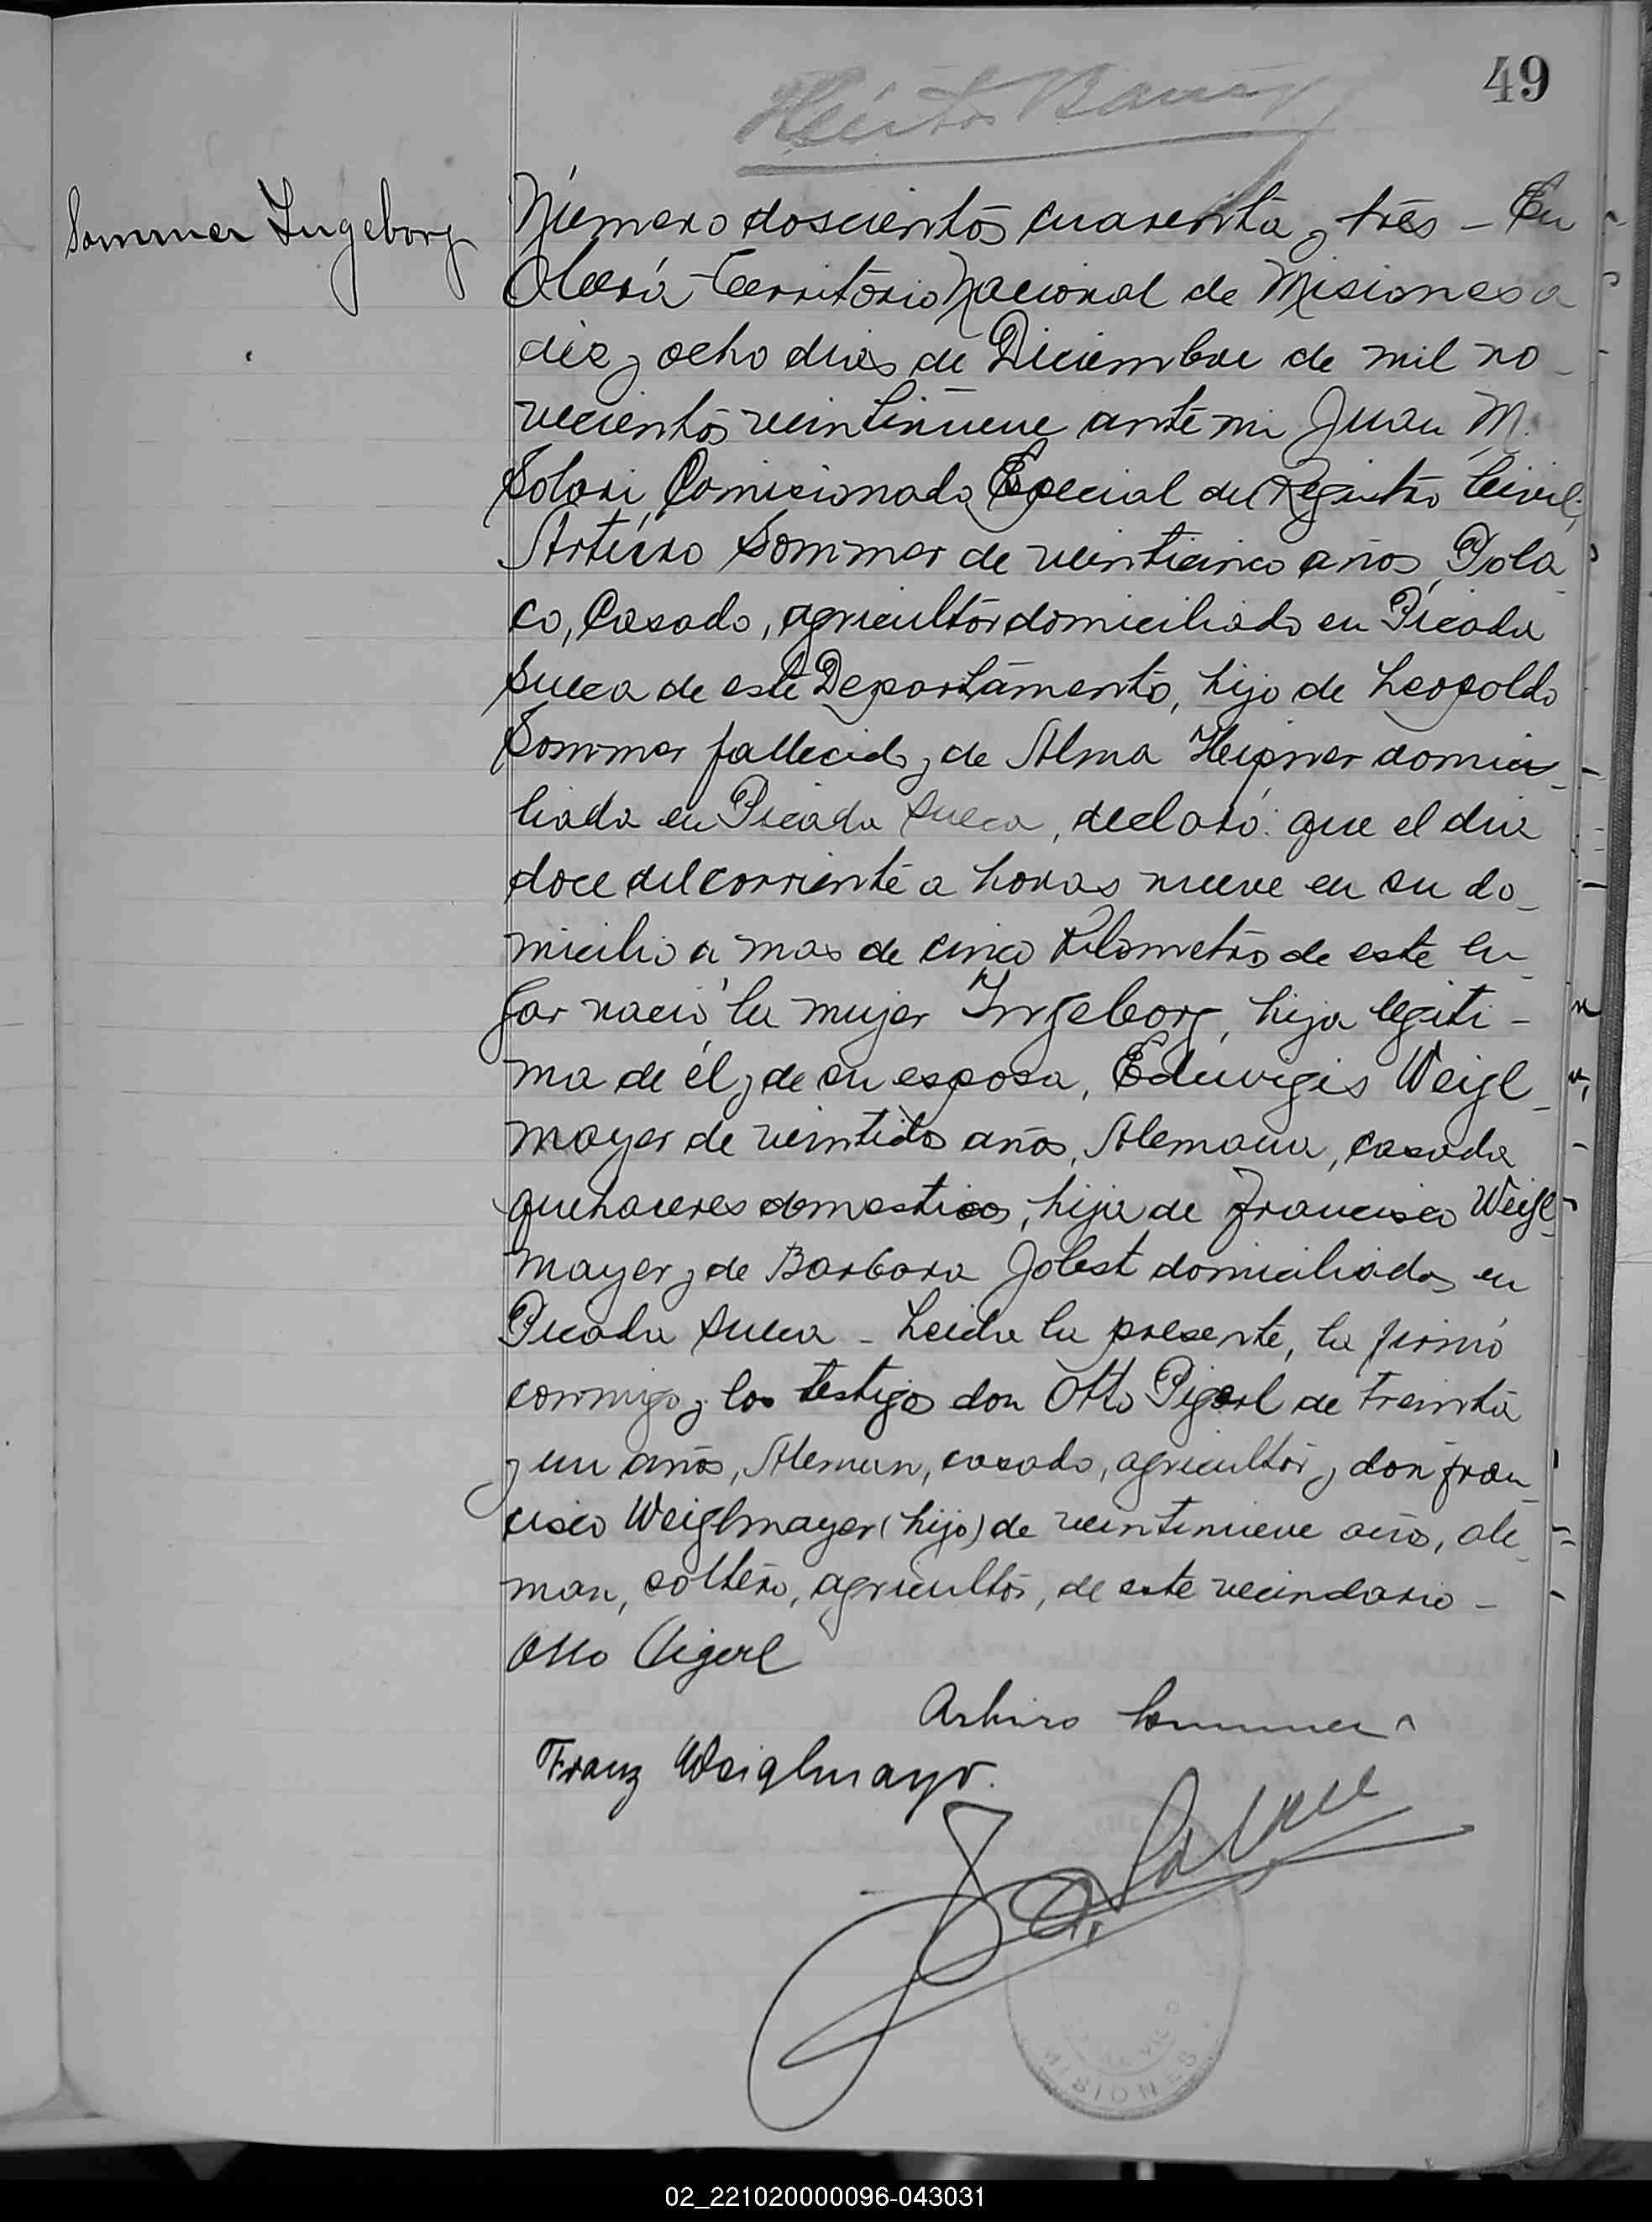 49
Sommer Ingeborg
Número doscientos cuarenta y tres - En
Oberá Territorio Nacional de Misiones a
diez y ocho dias de Diciembre de mil no_
vecientos veintinueve ante mi Juan M.
Solari, Comisionado Especial del Registro Civil,
Arturo Sommer de veinticinco años, Pola_
co, Casado, agricultor domiciliado en Picada
Sueca de este Departamento, hijo de Leopoldo
Sommer fallecido y de Alma Hepner domici_
liada en Picada Sueca, declaró: que el dia
doce del corriente a horas nueve en su do_
micilio a mas de cinco Kilometros de este lu_
gar nació la mujer Ingeborg, hija legiti-
ma de él y de su esposa, Eduvigis Weigl_
mayer de veintidos años, Alemana, casada
quehaceres domesticos, hija de Francisco Weigl_
mayer y de Barbara Jobst domiciliados en
Picada Sueca - Leida la presente, la firmó
conmigo y los testigos don Otto Pigerl de treinta
y un años, Aleman, casado, agricultor y don Fran_
cisco Weiglmayer (hijo) de veintinueve años, ale_
man, soltero, agricultor, de este vecindario -
Otto Pigerl
Arturo Sommer
Franz Weiglmayr.
MISIONES
02_221020000096-043031